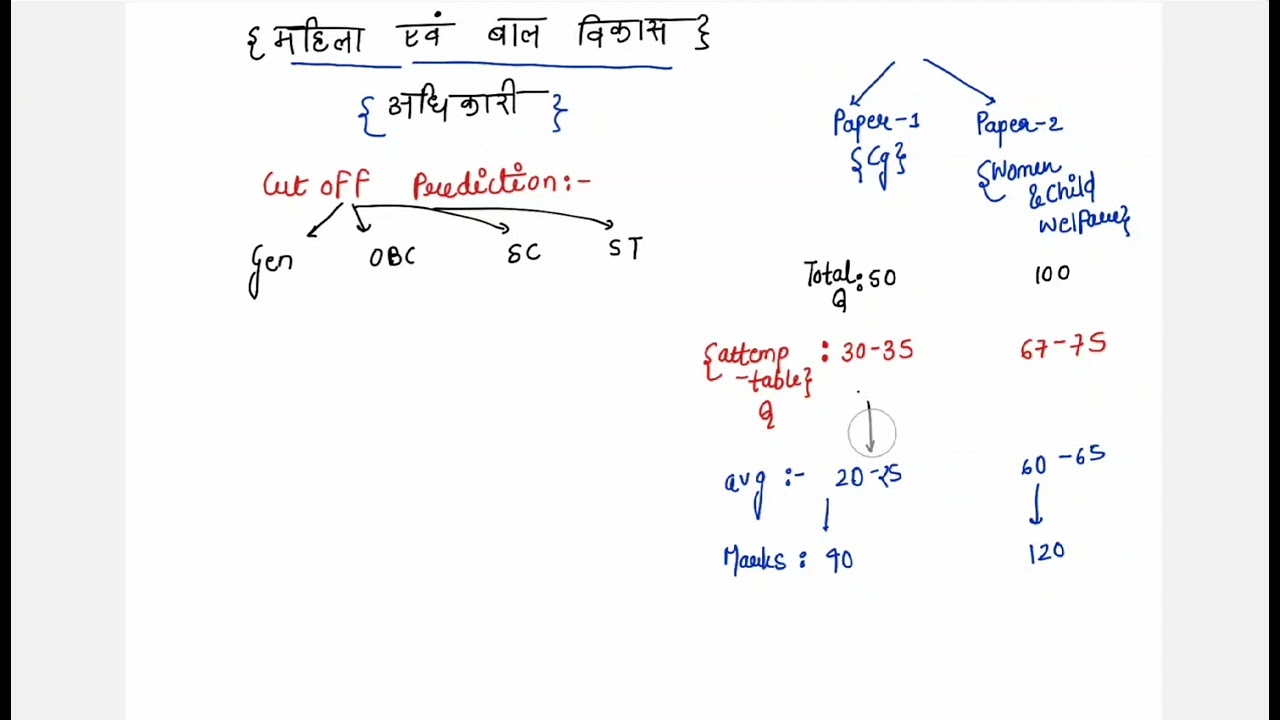 { महिला एवं बाल विकास }
{ अधिकारी }
Cut off Prediction:-
Gen OBC SC ST
Paper-1 Paper-2
{Cg} {Women
& Child
Welfare}
Total : 50 100
Q
{attemp : 30-35 67-75
-table}
Q
avg :- 20-25 60-65
Marks : 40 120